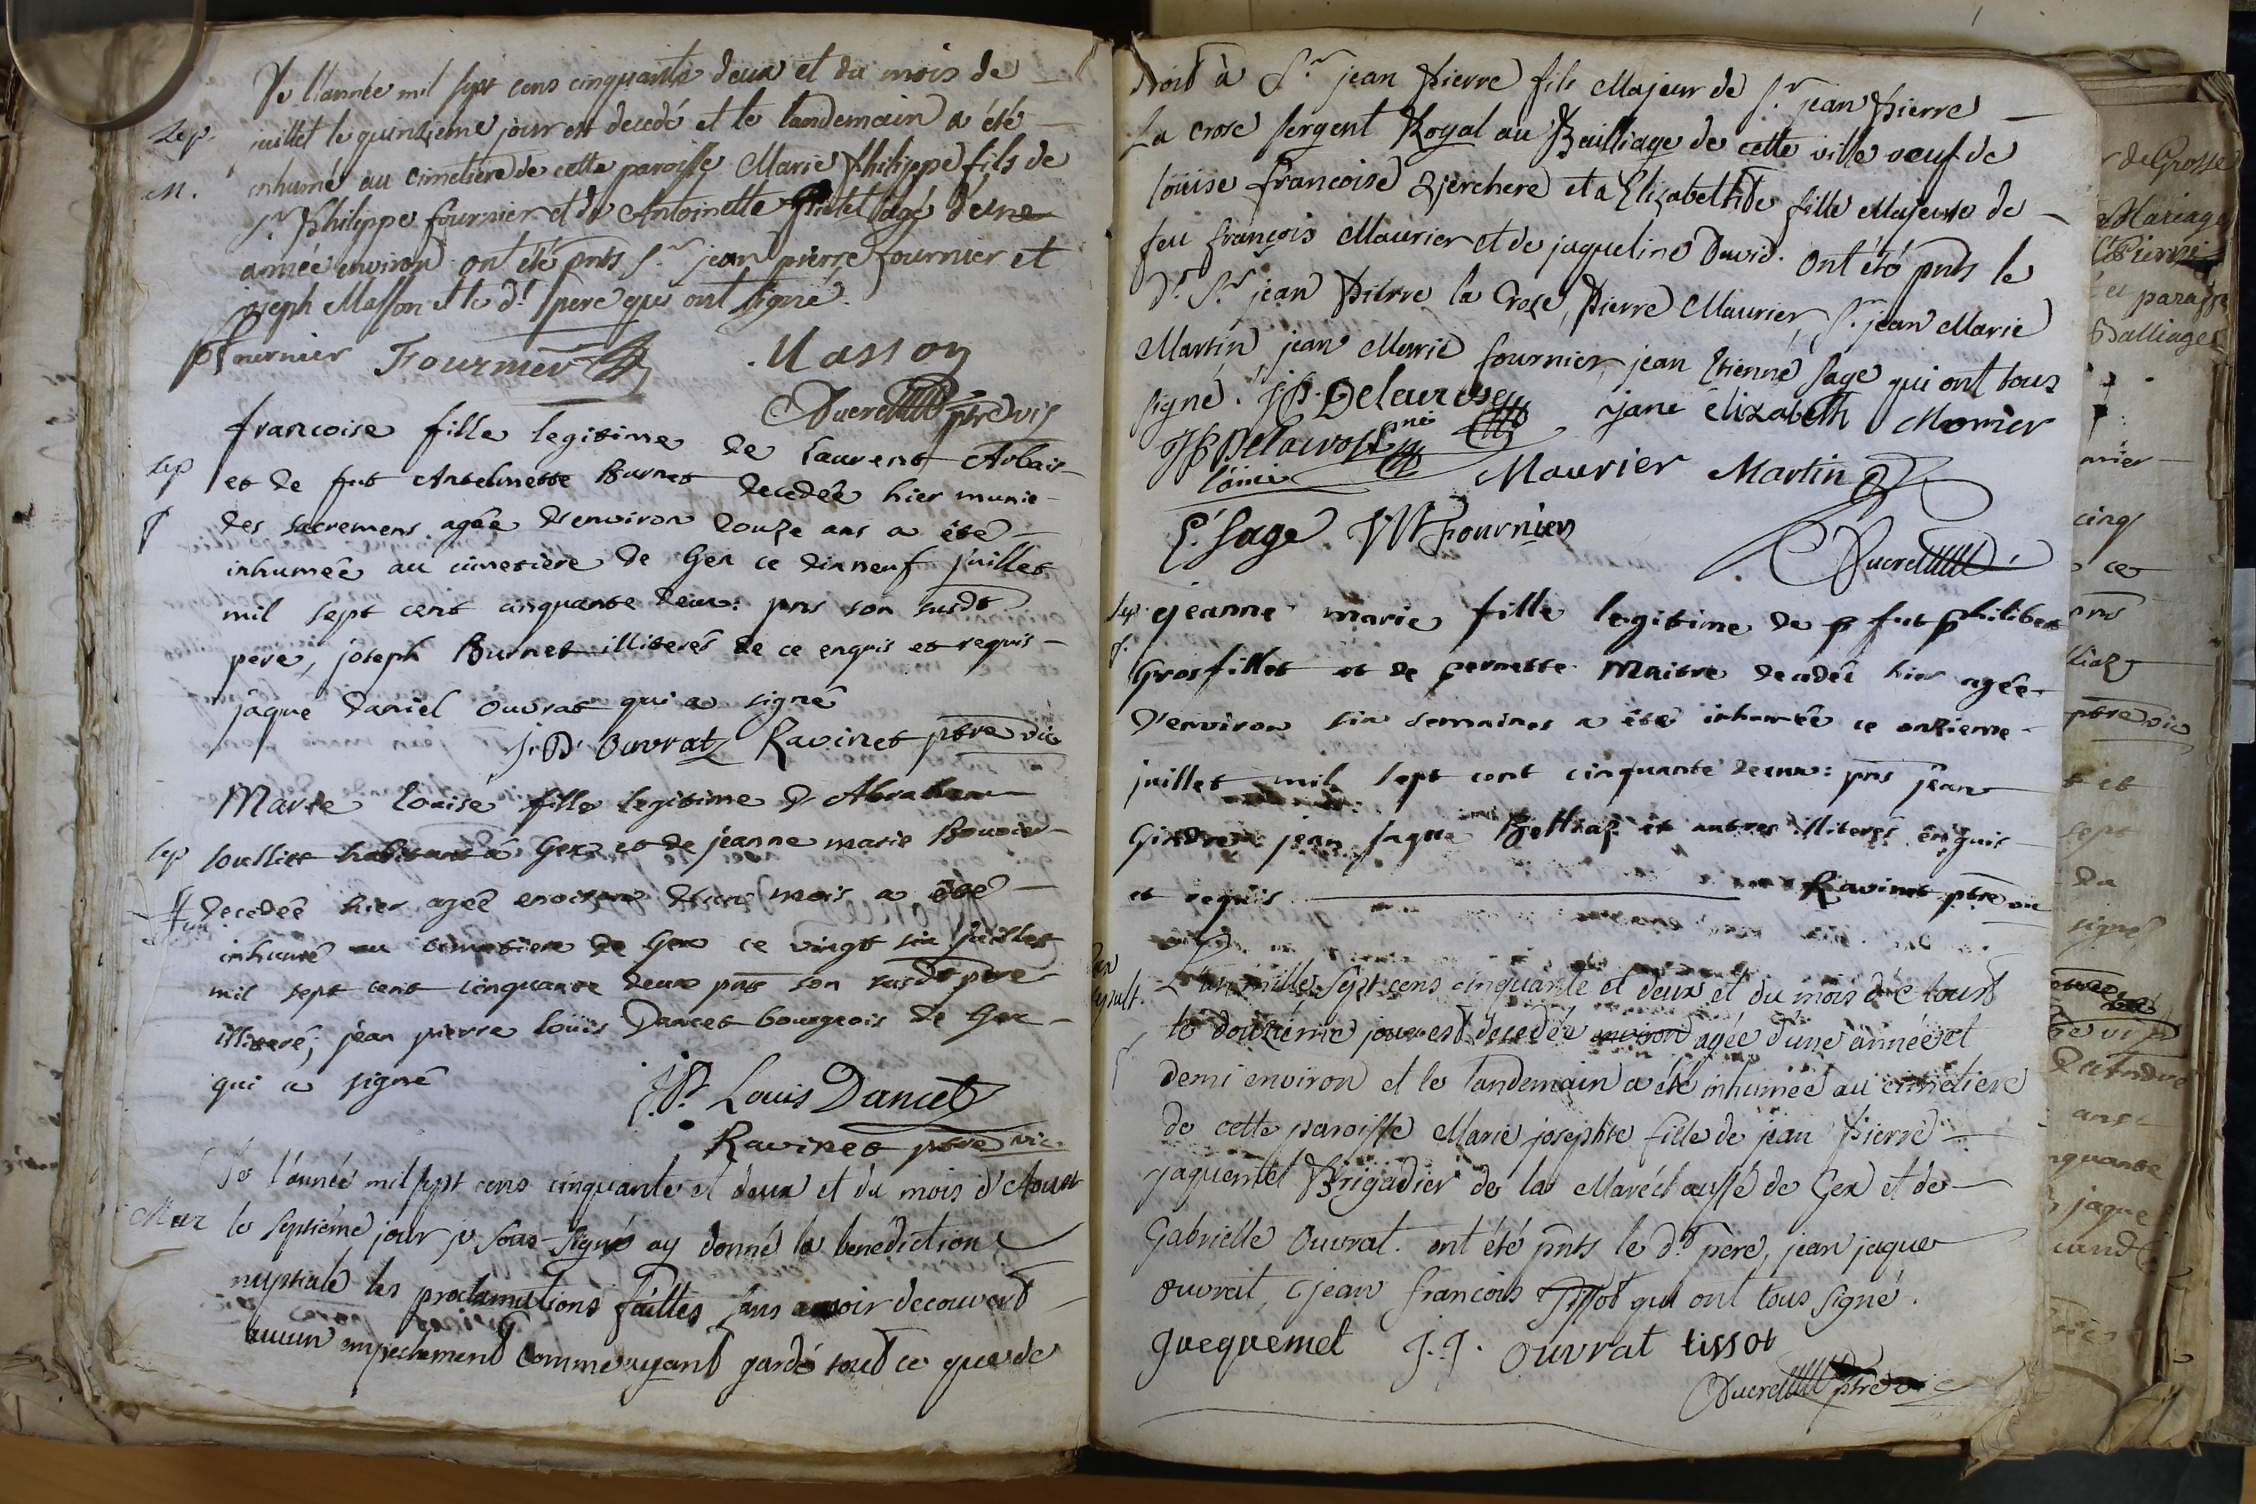 De l'année mil sept cens cinquante deux et du mois de
Sep. juillet le quinzieme jour est decedé et le landemain a été
M. inhumé au cimetiere de cette paroisse Marie Philippe fils de
Sr Philippe fournier et de Antoinette agé d'une
année environ ont été pnts Sr jean pierre fournier et
joseph Masson et le dt pere qui ont signé.
Fournier Fournier Masson
Ducret ptre vic
francoise fille legitime de laurent
Sep et de fut Antelmette Burnet decedée hier munie
f des sacremens agée d'environ douze ans a été
inhumée au cimetiere de Gex ce dixneuf juillet
mil sept cent cinquante deux: pns son susdt
pere, joseph Burnet illiterés de ce enquis et requis
jâque daniel ouvrat qui a signé
J. D. Ouvrat Ravinet ptre vic
Marie Louise fille legitime d'Abraham
Sep habitant à Gex et de jeanne marie Bouvier
decedée hier agée environ d'un mois a été
inhumé au cimetiere de Gex ce vingt six juillet
mil sept cent cinquante deux pnt son susdt pere
illiteré; jean pierre loüis Dancet bourgeois de Gex
qui a signé
J. P. Louis Dancet
Ravinet ptre vic.
De l'année mil sept cens cinquante et deux et du mois d'Aoust
Mar le septiéme jour je sous-signé ay donné la benédiction
nuptiale les proclamations faittes sans avoir decouvert
aucun empechement comme ayant gardé tout ce que de
droit à Sr jean Pierre fils Majeur de Sr jean Pierre
La crose sergent Royal au Bailliage de cette ville veuf de
loüise francoise et a Elizabeth fille Majeure de
feu françois Maurier et de jaqueline David. Ont été pnts le
dt Sr jean Pierre la Crose, Pierre Maurier, Sr jean Marie
Martin jean Marie fournier, jean Etienne Sage qui ont tous
signé. JP. Delacrose jane élizabeth Morier
JP Delacrose l'ainé Maurier Martin
E. Sage JM Fournier
Ducret
Sep. jeanne marie fille legitime de fut philibert
f. Grosfillet et de pernette Maitre decedée hier agée
d'environ six semaines a été inhumée ce onzieme
juillet mil sept cent cinquante deux: pns jean
Gindre jean jaque et autres illiterés enquis
et requis Ravinet ptre vic
L'an mille sept cens cinquante et deux et du mois d'Aoust
le douziéme jour est decedée agée d'une année et
demi environ et le landemain a été inhumée au cimetiere
de cette paroisse Marie josephte fille de jean Pierre
jaquemet Brigadier de la Maréchaussé de Gex et de
Gabrielle Ouvrat. ont été pnts le dt pere, jean jaque
ouvrat, jean francois Tissot qui ont tous signé.
jaequemet J. J. ouvrat tissot
Ducret ptre vic